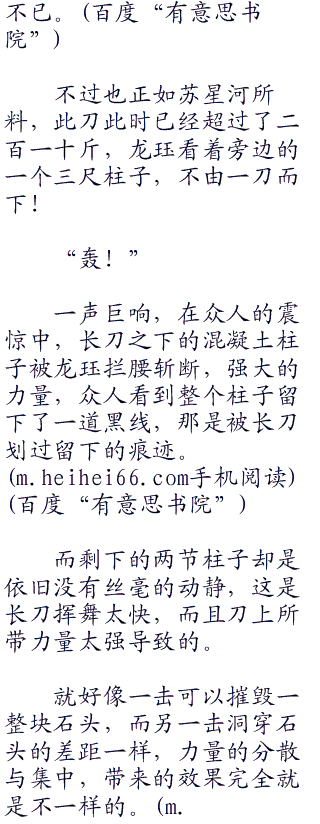 不已。(百度“有意思书
院”)
不过也正如苏星河所
料，此刀此时已经超过了二
百一十斤，龙珏看着旁边的
一个三尺柱子，不由一刀而
下！
“轰！”
一声巨响，在众人的震
惊中，长刀之下的混凝土柱
子被龙珏拦腰斩断，强大的
力量，众人看到整个柱子留
下了一道黑线，那是被长刀
划过留下的痕迹。
(m.heihei66.com手机阅读)
(百度“有意思书院”)
而剩下的两节柱子却是
依旧没有丝毫的动静，这是
长刀挥舞太快，而且刀上所
带力量太强导致的。
就好像一击可以摧毁一
整块石头，而另一击洞穿石
头的差距一样，力量的分散
与集中，带来的效果完全就
是不一样的。(m.